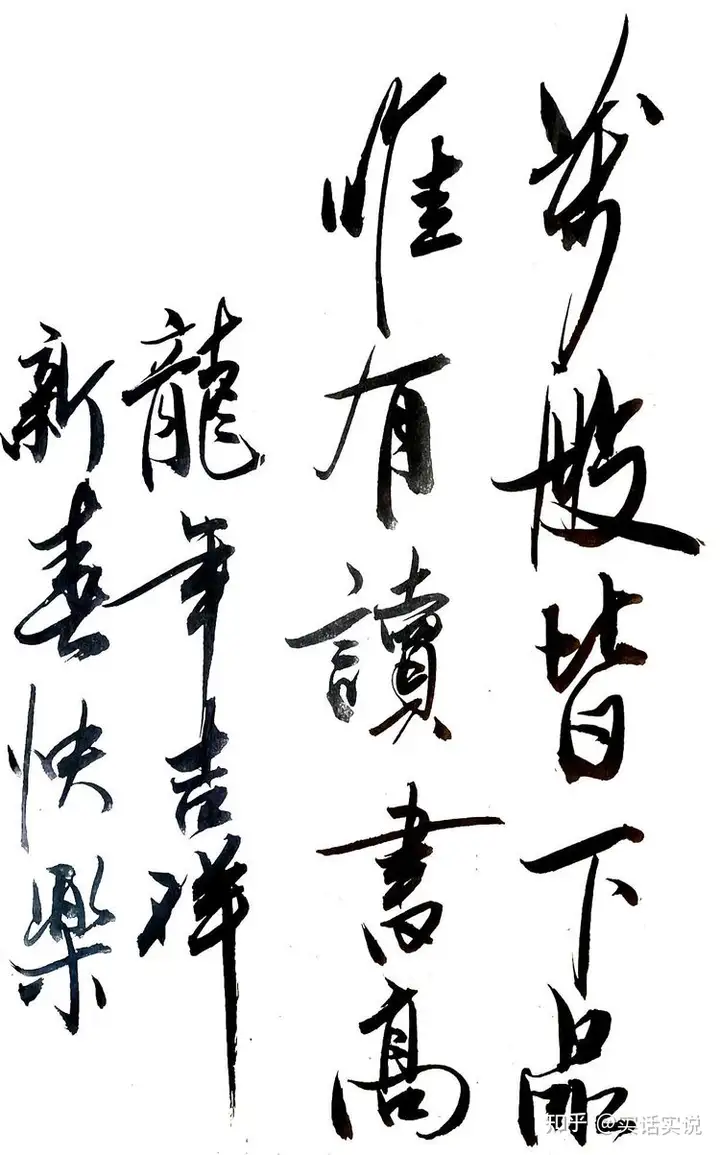 萬般皆下品
唯有讀書高
龍年吉祥
新春快樂
知乎 @实话实说